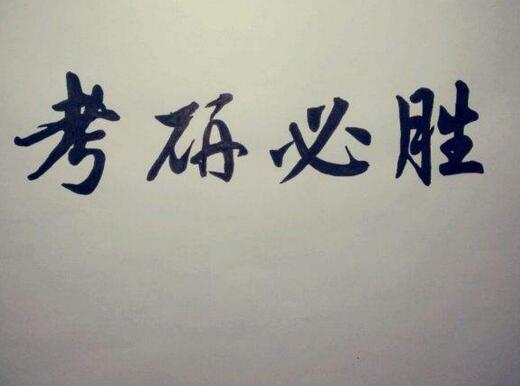 考研必胜